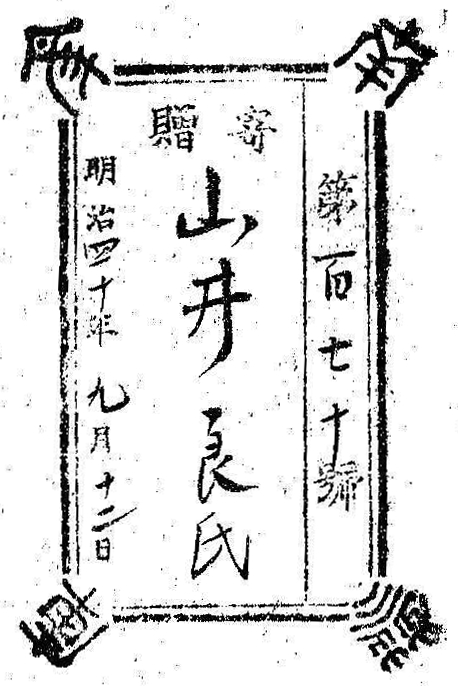 第百七十號
寄贈
山井良氏
明治四十年九月十二日